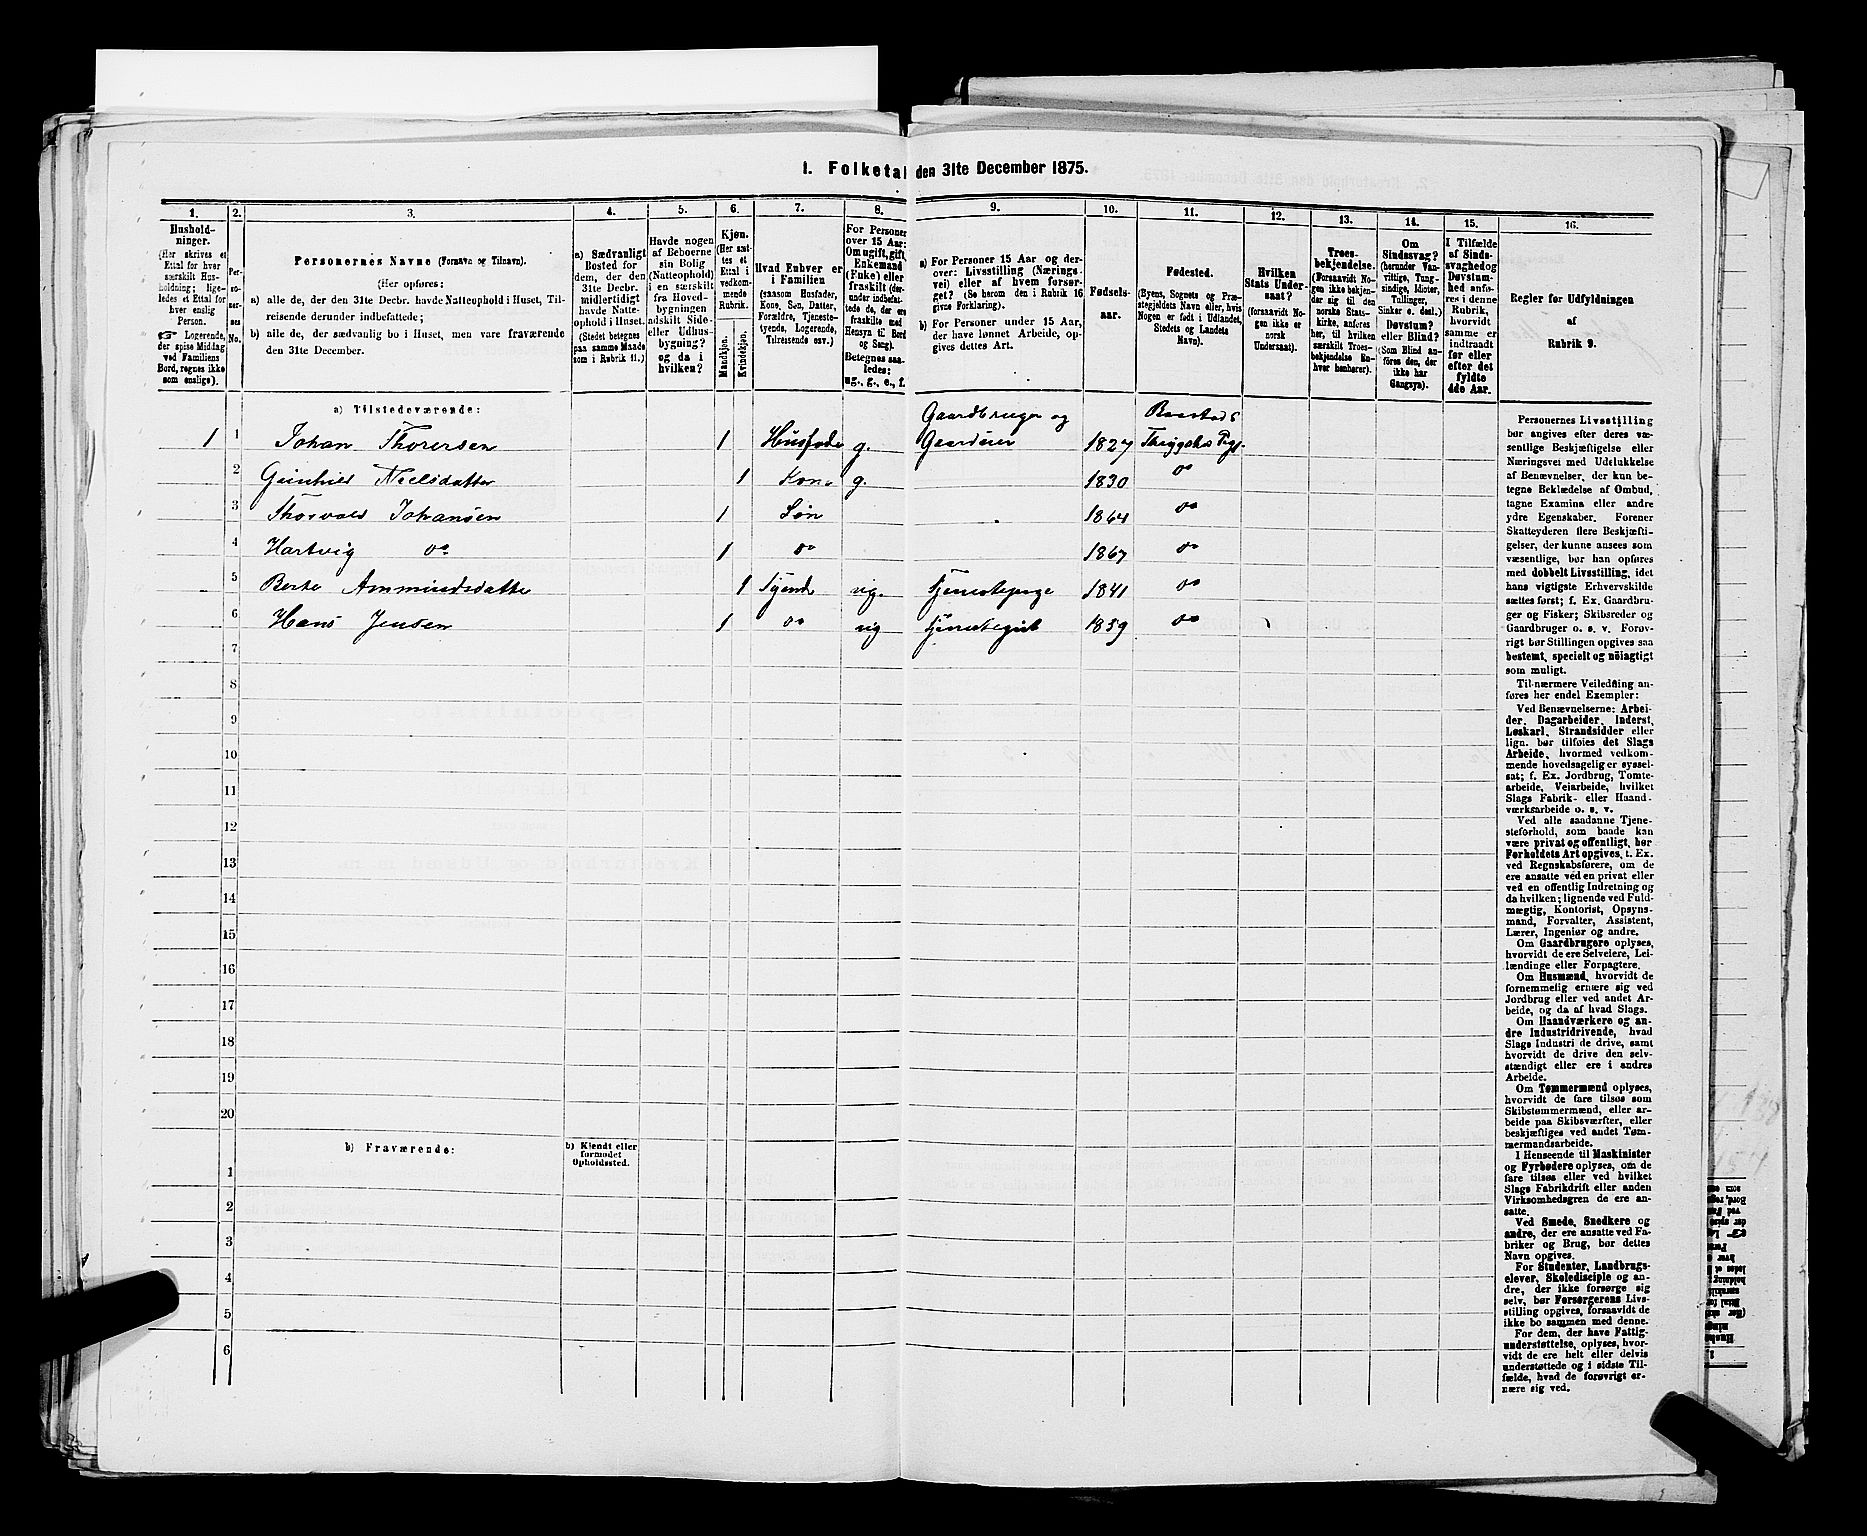 1. Folketal den 31te December 1875.
1. 2. 3. 4. 5. 6. 7. 8. 9. 10. 11. 12. 13. 14. 15. 16.
Husholdninger.
(Her skrives et
Ettal for hver
særskilt Hus-
holdning; lige-
ledes et Ettal for
hver enslig
Person.
☞ Logerende,
der spise Middag
ved Familiens
Bord, regnes ikke
som enslige).
Per-
so-
ner-
nes
No.
Personernes Navne (Fornavn og Tilnavn).
(Her opføres:
a) alle de, der den 31te Decbr. havde Natteophold i Huset, Til-
reisende derunder indbefattede;
b) alle de, der sædvanlig bo i Huset, men vare fraværende
den 31te December.
a) Sædvanligt
Bosted for
dem, der den
31te Decbr.
midlertidigt
havde Natte-
ophold i Huset.
(Stedet betegnes
paa samme Maade
som i Rubrik 11.)
Havde nogen
af Beboerne
sin Bolig
(Natteophold)
i en særskilt
fra Hoved-
bygningen
adskilt Side-
eller Udhus-
bygning?
og da i
hvilken?
Kjøn.
(Her sæt-
tes et
Ettal i
vedkom-
mende
Rubrik.
Mandkjøn.
Kvindekjøn.
Hvad Enhver er
i Familien
(saasom Husfader,
Kone, Søn, Datter,
Forældre, Tjeneste-
tyende, Logerende,
Tilreisende osv.)
For Personer
over 15 Aar:
Om ugift, gift,
Enkemand
(Enke) eller
fraskilt (der-
under indbefat-
tede de, der ere
fraskilte med
Hensyn til Bord
og Seng).
Betegnes saa-
ledes:
ug., g., e., f.
a) For Personer 15 Aar og der-
over: Livsstilling (Nærings-
vei) eller af hvem forsør-
get? (Se herom den i Rubrik 16
givne Forklaring).
b) For Personer under 15 Aar,
der have lønnet Arbeide, op-
gives dettes Art.
Fødsels-
aar.
Fødested.
(Byens, Sognets og Præ-
stegjeldets Navn eller, hvis
Nogen er født i Udlandet,
Stedets og Landets
Navn).
Hvilken
Stats Under-
saat?
(forsaavidt No-
gen ikke er
norsk
Undersaat).
Troes-
bekjendelse.
(Forsaavidt No-
gen ikke bekjen-
der sig til den
norske Stats-
kirke, anføres
her, til hvilken
særskilt Troes-
bekjendelse En-
hver henhører).
Om
Sindssvag?
(herunder Van-
vittige, Tung-
sindige, Idioter,
Tullinger,
Sinker o. desl.)
Døvstum?
eller Blind?
(Som Blind an-
føres den, der
ikke har
Gangsyn).
I Tilfælde
af Sinds-
svaghed og
Døvstum-
hed anfø-
res i denne
Rubrik,
hvorvidt
samme er
indtraadt
før eller
efter det
fyldte
4de Aar.
Regler for Udfyldningen
af
Rubrik 9.
a) Tilstedeværende:
Gaardbruger og
1 1 Johan Thorersen 1 Husfader g. Gaardeier 1827 Pgj.
2 Gunhild Nielsdatter 1 Kone g. 1830 do
3 Thorvald Johansen 1 Søn 1864 do
4 Hartvig do 1 do 1867 do
5 Berte Ammundsdatter 1 Tyende ug. Tjenestepige 1841 do
6 Hans Jensen 1 do ug Tjenestegut 1859 do
7
8
9
10
11
12
13
14
15
16
17
18
19
20
b) Fraværende:
b) Kjendt eller
formodet
Opholdssted.
1
2
3
4
5
6
Personernes Livsstilling
bør angives efter deres væ-
sentlige Beskjæftigelse eller
Næringsvei med Udelukkelse
af Benævnelser, der kun be-
tegne Beklædelse af Ombud,
tagne Examina eller andre
ydre Egenskaber. Forener
Skatteyderen flere Beskjæfti-
gelser, der kunne ansees som
væsentlige, bør han opføres
med dobbelt Livsstilling, idet
hans vigtigste Erhvervskilde
sættes først; f. Ex. Gaardbru-
ger og Fisker; Skibsreder og
Gaardbruger o. s. v. Forøv-
rigt bør Stillingen opgives saa
bestemt, specielt og nöiagtigt
som muligt.
Til nærmere Veiledning an-
føres her endel Exempler:
Ved Benævnelserne: Arbei-
der, Dagarbeider, Inderst,
Løskarl, Strandsidder eller
lign. bør tilføies det Slags
Arbeide, hvormed vedkom-
mende hovedsagelig er syssel-
sat; f. Ex. Jordbrug, Tomte-
arbeide, Veiarbeide, hvilket
Slags Fabrik- eller Haand-
værksarbeide o. s. v.
Ved alle saadanne Tjene-
steforhold, som baade kan
være privat og offentligt, bør
Forholdets Art opgives, t. Ex.
ved Regnskabsførere, om de
ere ansatte ved en privat eller
ved en offentlig Indretning og
da hvilken; lignende ved Fuld-
mægtig, Kontorist, Opsyns-
mand, Forvalter, Assistent,
Lærer, Ingeniør og andre.
Om Gaardbrugere oplyses,
hvorvidt de ere Selveiere, Lei-
lændinge eller Forpagtere.
Om Husmænd, hvorvidt de
fornemmelig ernære sig ved
Jordbrug eller ved andet Ar-
beide, og da af hvad Slags.
Om Haandværkere og an-
dre Industridrivende, hvad
Slags Industri de drive, samt
hvorvidt de drive den selv-
stændigt eller ere i andres
Arbeide.
Om Tømmermænd oplyses,
hvorvidt de fare tilsøs som
Skibstømmermænd, eller ar-
beide paa Skibsværfter, eller
beskjæftiges ved andet Tøm-
mermandsarbeide.
I Henseende til Maskinister
og Fyrbødere oplyses, om de
fare tilsøs eller ved hvilket
Slags Fabrikdrift eller anden
Virksomhedsgren de ere an-
satte.
Ved Smede, Snedkere og
andre, der ere ansatte ved Fa-
briker og Brug, bør dettes
Navn opgives.
For Studenter, Landbrugs-
elever, Skoledisciple og an-
dre, der ikke forsørge sig
selv, bør Forsørgerens Livs-
stilling opgives, forsaavidt de
ikke bo sammen med denne.
For dem, der have Fattig-
understøttelse, oplyses, hvor-
vidt de ere helt eller delvis
understøttede og i sidste Til-
fælde, hvad de forøvrigt er-
nære sig ved.